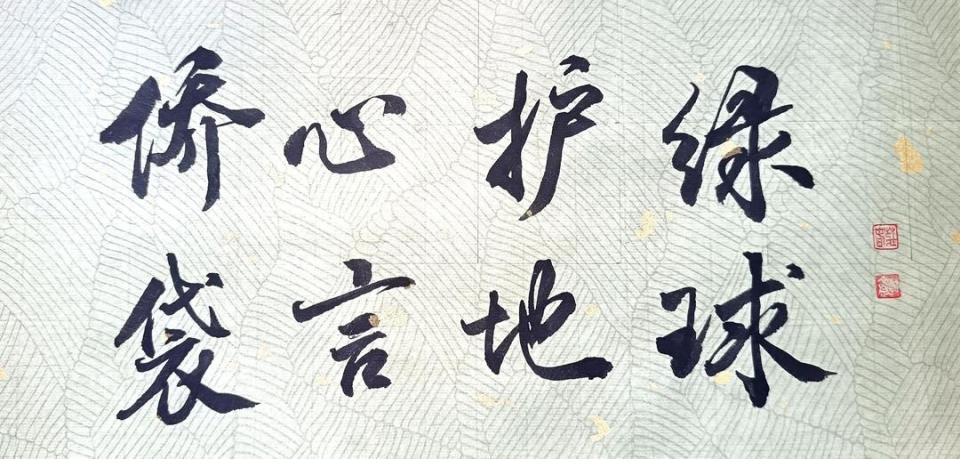 侨心护绿
袋言地球